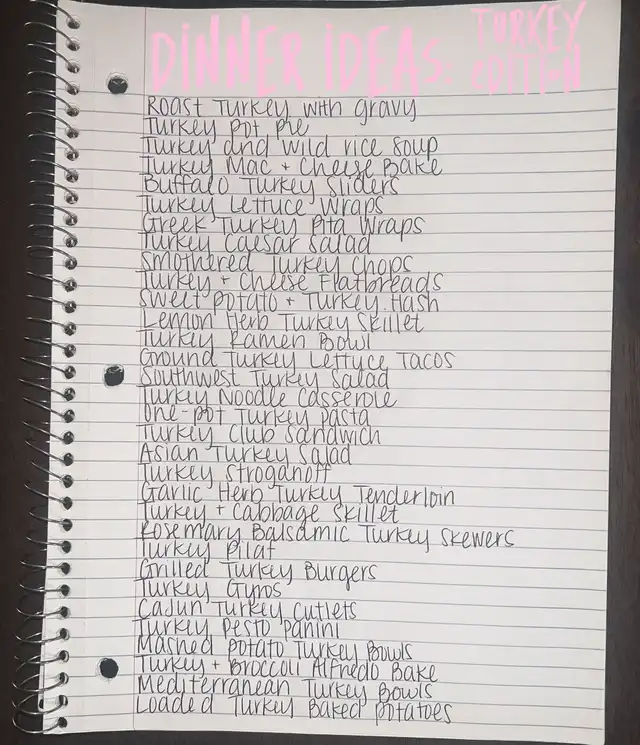 DINNER IDEAS: TURKEY EDITION
Roast Turkey with gravy
Turkey Pot Pie
Turkey and wild rice soup
Turkey Mac + Cheese Bake
Buffalo Turkey Sliders
Turkey Lettuce Wraps
Greek Turkey Pita Wraps
Turkey Caesar Salad
Smothered Turkey Chops
Turkey + Cheese Flatbreads
Sweet Potato + Turkey Hash
Lemon Herb Turkey Skillet
Turkey Ramen Bowl
Ground Turkey Lettuce Tacos
Southwest Turkey Salad
Turkey Noodle Casserole
One-Pot Turkey Pasta
Turkey Club Sandwich
Asian Turkey Salad
Turkey Stroganoff
Garlic Herb Turkey Tenderloin
Turkey + Cabbage Skillet
Rosemary Balsamic Turkey Skewers
Turkey Pilaf
Grilled Turkey Burgers
Turkey Gyros
Cajun Turkey Cutlets
Turkey Pesto Panini
Mashed Potato Turkey Bowls
Turkey + Broccoli Alfredo Bake
Mediterranean Turkey Bowls
Loaded Turkey Baked Potatoes